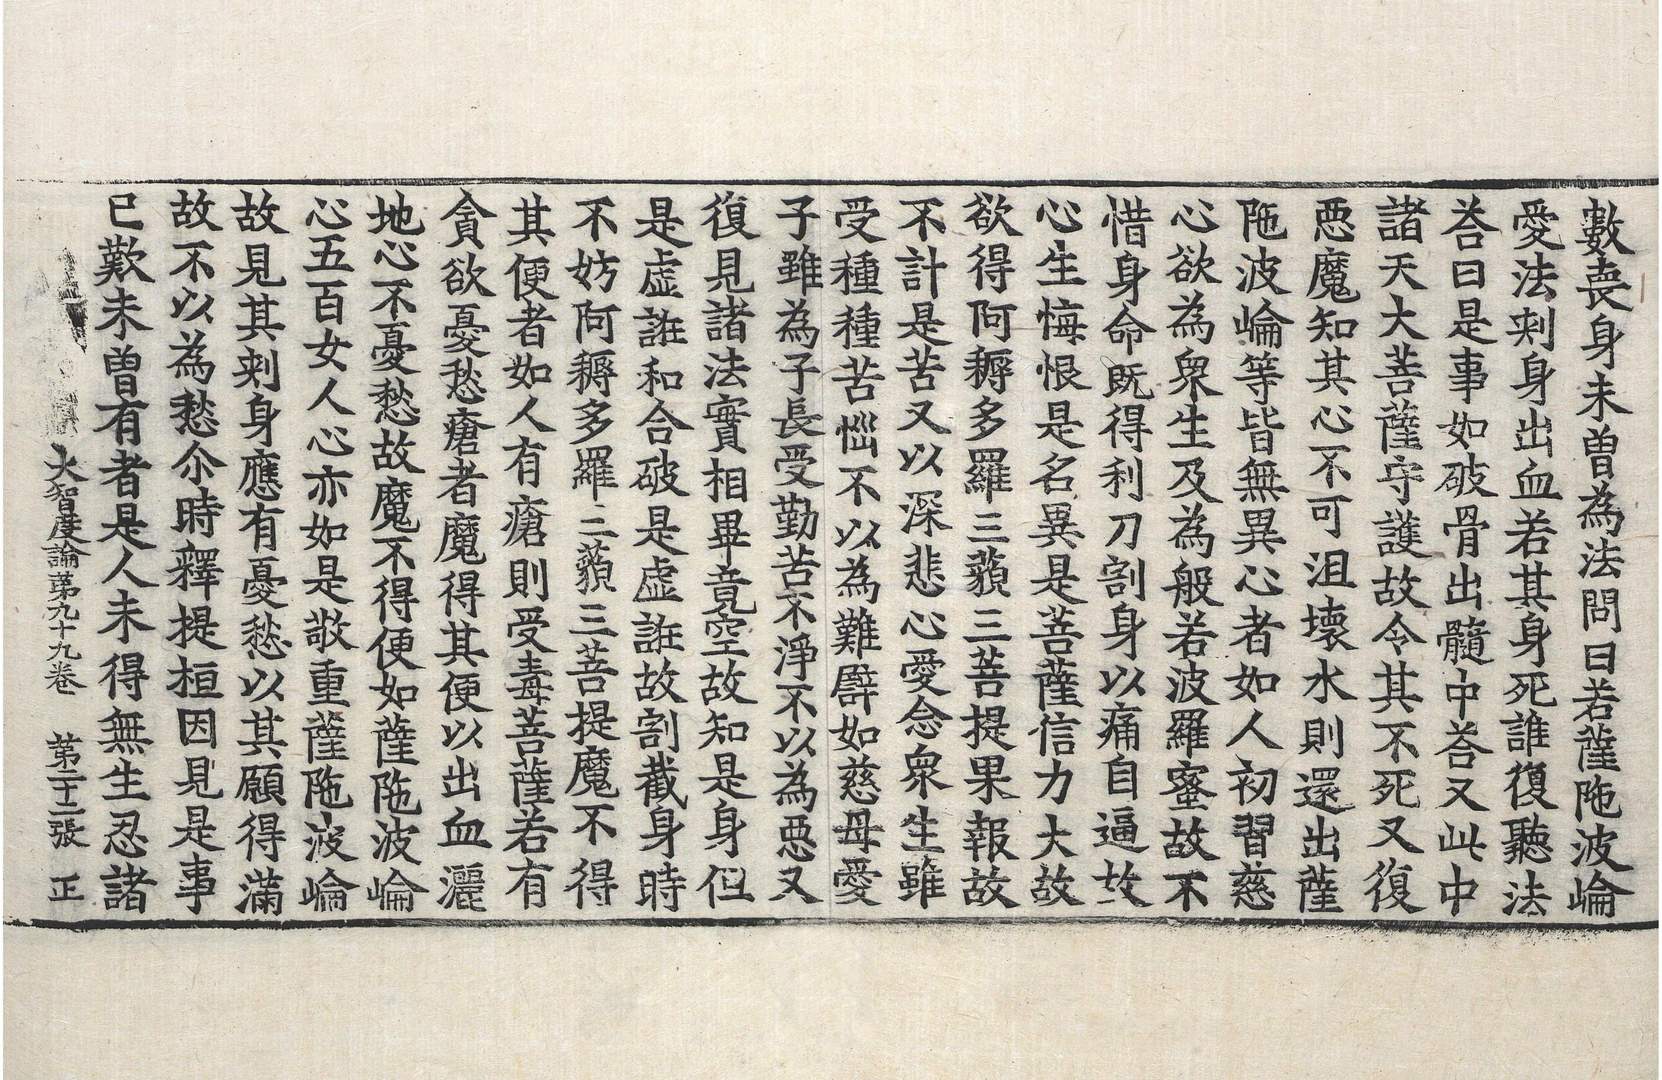 數喪身未曽為法問曰若薩陁波崘
愛法刾身出血若其身死誰復聽法
荅曰是事如破骨出髓中荅又此中
諸天大菩薩守護故令其不死又復
惡魔知其心不可沮壊水則還出薩
陁波崘等皆無異心者如人初習慈
心欲為衆生及為般若波羅蜜故不
惜身命旣得利刀割身以痛自逼故
心生悔恨是名異是菩薩信力大故
欲得阿耨多羅三藐三菩提果報故
不計是苦又以深悲心愛念衆生雖
受種種苦惱不以為難譬如慈母愛
子雖為子長受勤苦不淨不以為惡又
復見諸法實相畢竟空故知是身但
是虛誑和合破是虛誑故割截身時
不妨阿耨多羅三藐三菩提魔不得
其便者如人有瘡則受毒菩薩若有
貪欲憂愁瘡者魔得其便以出血灑
地心不憂愁故魔不得便如薩陁波崘
心五百女人心亦如是敬重薩陁波崘
故見其刾身應有憂愁以其願得滿
故不以為愁尒時釋提桓因見是事
已歎未曽有者是人未得無生忍諸
大智度論第九十九卷　第二十二張　正